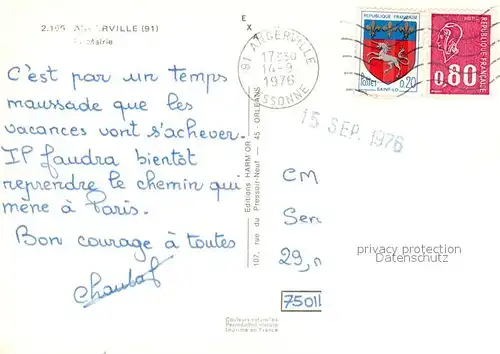 2.195 ANGERVILLE (91)
Mairie
E
X
91 ANGERVILLE
17H30
14-9
1976
ESSONNE
REPUBLIQUE FRANÇAISE
Postes 0,20
SAINT-LO
0,80
POSTES
REPUBLIQUE FRANÇAISE
15 SEP. 1976
C'est par un temps
maussade que les
vacances vont s'achever.
Il faudra bientôt
reprendre le chemin qui
mène à Paris.
Bon courage à toutes
Editions HARMOR
107, rue du Pressoir-Neuf — 45 - ORLEANS
CM
Ser
29, r
privacy protection
Datenschutz
75011
Couleurs naturelles
Reproduction interdite
Imprimé en France